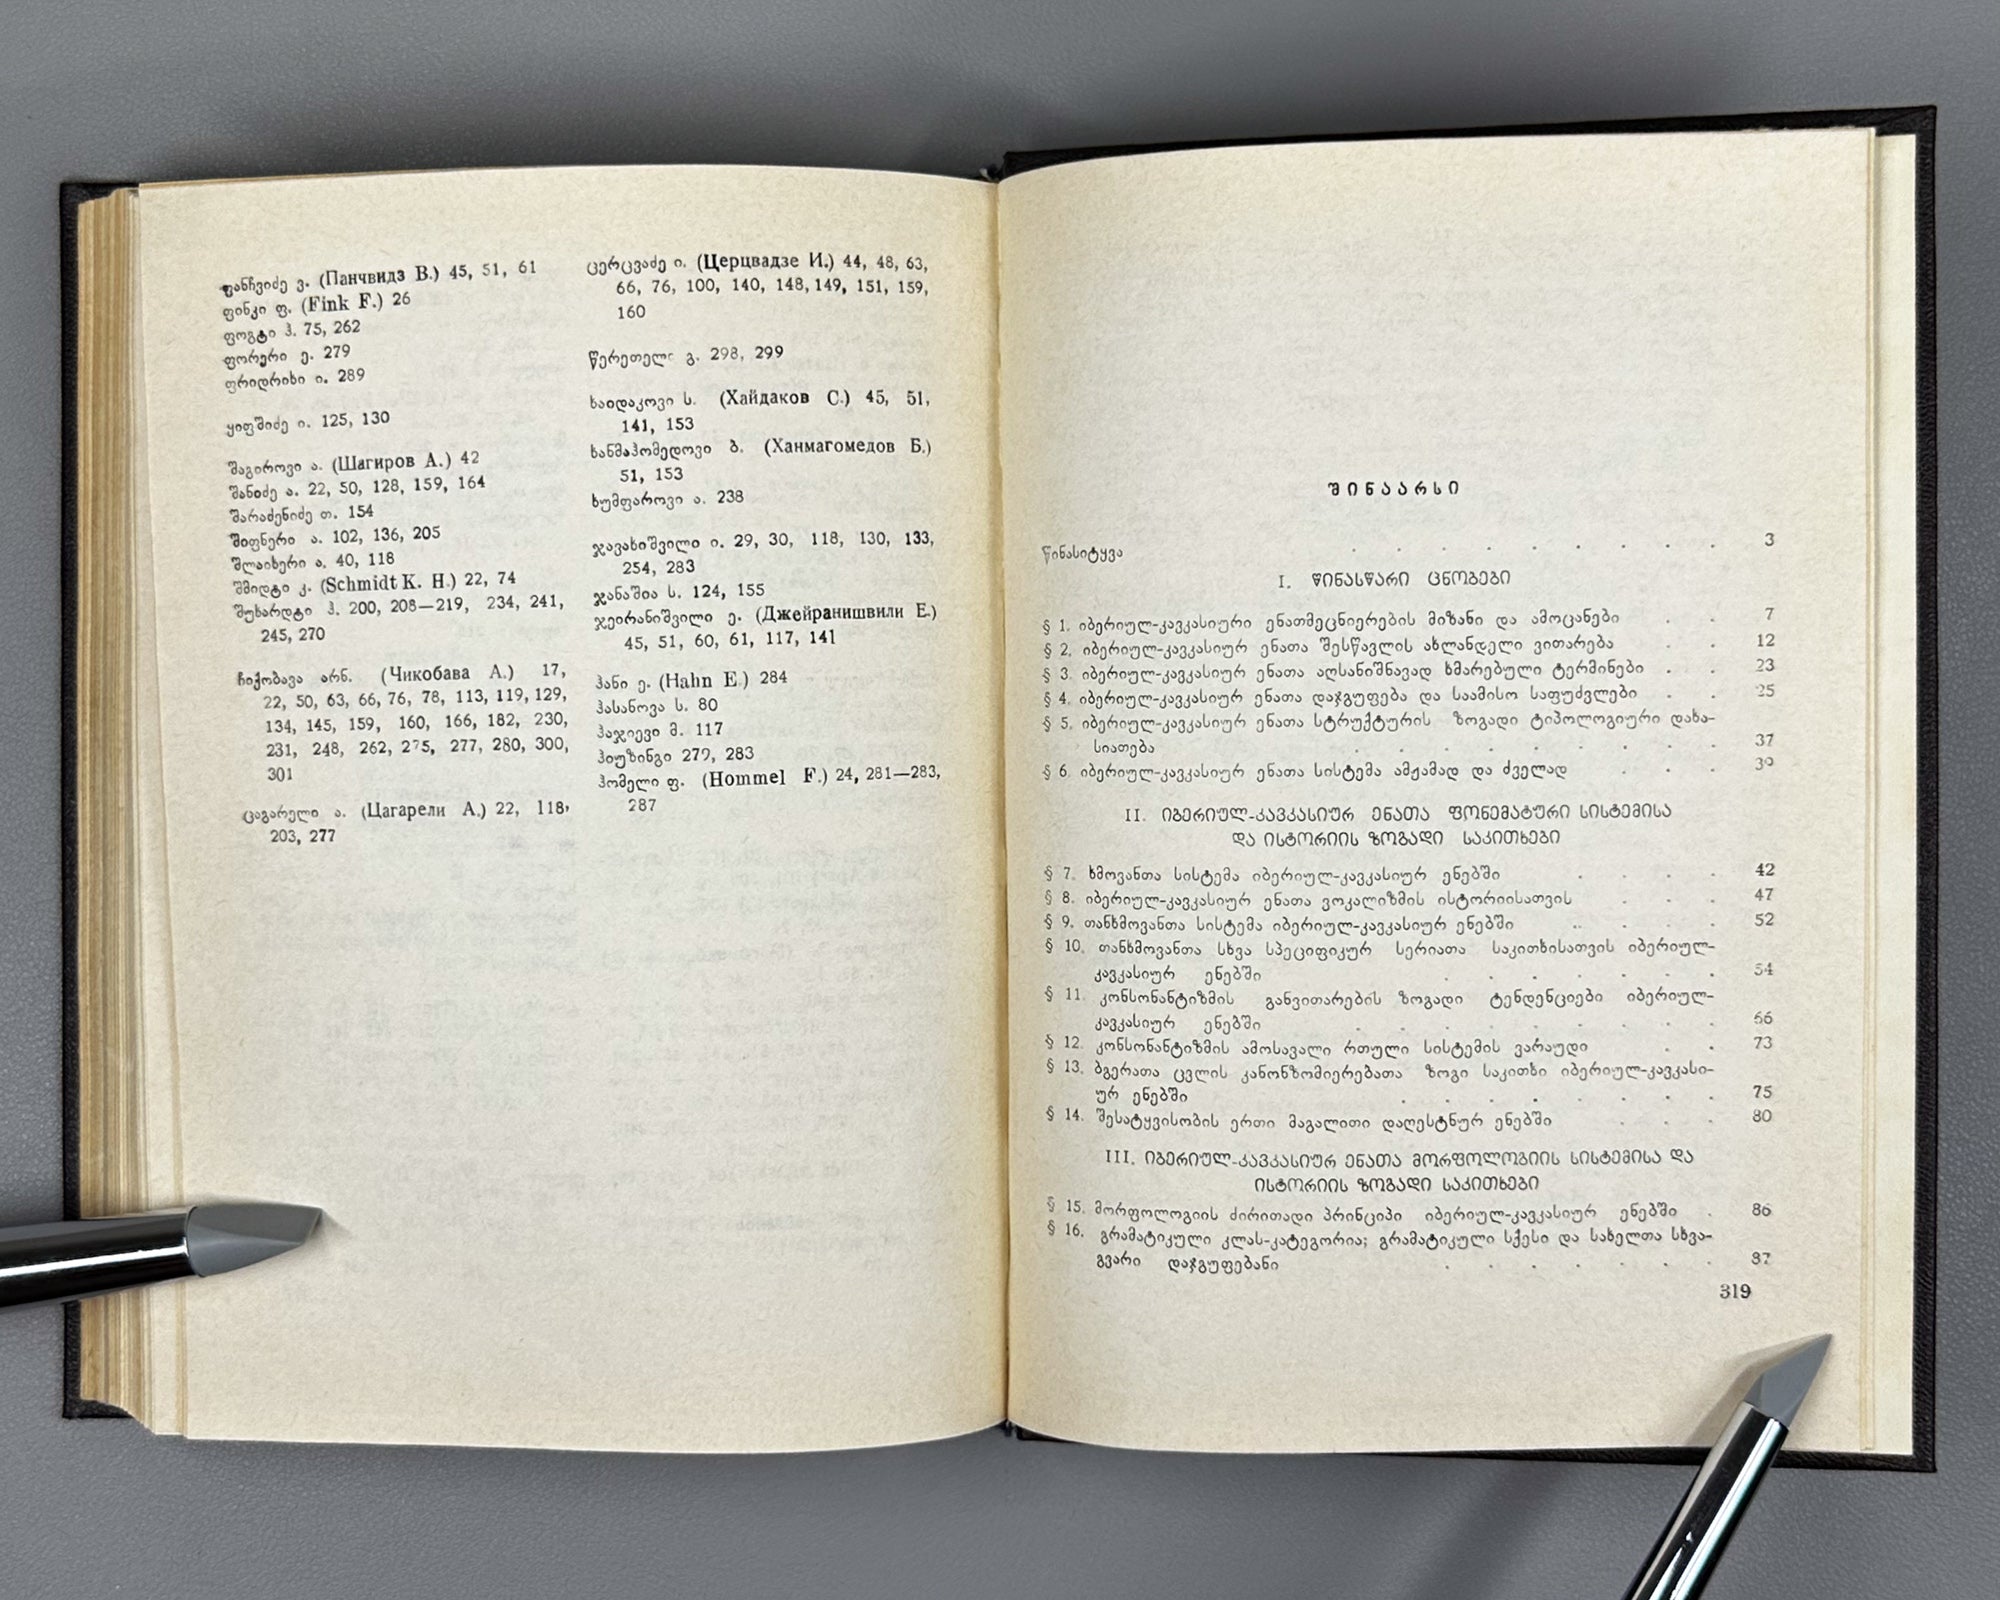 ფანჩვიძე ვ. (Панчвидз В.) 45, 51, 61
ფინკი ფ. (Fink F.) 26
ფოგტი ჰ. 75, 262
ფორერი ე. 279
ფრიდრიხი ი. 289
ყიფშიძე ი. 125, 130
შაგიროვი ა. (Шагиров А.) 42
შანიძე ა. 22, 50, 128, 159, 164
შარაძენიძე თ. 154
შიფნერი ა. 102, 136, 205
შლაიხერი ა. 40, 118
შმიდტი კ. (Schmidt K. H.) 22, 74
შუხარდტი ჰ. 200, 208—219, 234, 241,
245, 270
ჩიქობავა არნ. (Чикобава А.) 17,
22, 50, 63, 66, 76, 78, 113, 119, 129,
134, 145, 159, 160, 166, 182, 230,
231, 248, 262, 275, 277, 280, 300,
301
ცაგარელი ა. (Цагарели А.) 22, 118,
203, 277
ცერცვაძე ი. (Церцвадзе И.) 44, 48, 63,
66, 76, 100, 140, 148, 149, 151, 159,
160
წერეთელი გ. 298, 299
ხაიდაკოვი ს. (Хайдаков С.) 45, 51,
141, 153
ხანმაჰომედოვი ბ. (Ханмагомедов Б.)
51, 153
ხუმფაროვი ა. 238
ჯავახიშვილი ი. 29, 30, 118, 130, 133,
254, 283
ჯანაშია ს. 124, 155
ჯეირანიშვილი ე. (Джейранишвили Е.)
45, 51, 60, 61, 117, 141
ჰანი ე. (Hahn E.) 284
ჰასანოვა ს. 80
ჰაჯიევი მ. 117
ჰიუზინგი 279, 283
ჰომელი ფ. (Hommel F.) 24, 281—283,
287
შინაარსი
წინასიტყვა . . . . . . . . . 3
I. წინასწარი ცნობები
§ 1. იბერიულ-კავკასიური ენათმეცნიერების მიზანი და ამოცანები . . 7
§ 2. იბერიულ-კავკასიურ ენათა შესწავლის ახლანდელი ვითარება . . 12
§ 3. იბერიულ-კავკასიურ ენათა აღსანიშნავად ხმარებული ტერმინები . . 23
§ 4. იბერიულ-კავკასიურ ენათა დაჯგუფება და საამისო საფუძვლები . . 25
§ 5. იბერიულ-კავკასიურ ენათა სტრუქტურის ზოგადი ტიპოლოგიური დახა-
სიათება . . . . . . . . . 37
§ 6. იბერიულ-კავკასიურ ენათა სისტემა ამჟამად და ძველად . . . 39
II. იბერიულ-კავკასიურ ენათა ფონემატური სისტემისა
და ისტორიის ზოგადი საკითხები
§ 7. ხმოვანთა სისტემა იბერიულ-კავკასიურ ენებში . . . . 42
§ 8. იბერიულ-კავკასიურ ენათა ვოკალიზმის ისტორიისათვის . . . 47
§ 9. თანხმოვანთა სისტემა იბერიულ-კავკასიურ ენებში . . . . 52
§ 10. თანხმოვანთა სხვა სპეციფიკურ სერიათა საკითხისათვის იბერიულ-
კავკასიურ ენებში . . . . . . . 54
§ 11. კონსონანტიზმის განვითარების ზოგადი ტენდენციები იბერიულ-
კავკასიურ ენებში . . . . . . . . . 66
§ 12. კონსონანტიზმის ამოსავალი რთული სისტემის ვარაუდი . . 73
§ 13. ბგერათა ცვლის კანონზომიერებათა ზოგი საკითხი იბერიულ-კავკასი-
ურ ენებში . . . . . . . . 75
§ 14. შესატყვისობის ერთი მაგალითი დაღესტნურ ენებში . . . 80
III. იბერიულ-კავკასიურ ენათა მორფოლოგიის სისტემისა და
ისტორიის ზოგადი საკითხები
§ 15. მორფოლოგიის ძირითადი პრინციპი იბერიულ-კავკასიურ ენებში . 86
§ 16. გრამატიკული კლას-კატეგორია; გრამატიკული სქესი და სახელთა სხვა-
გვარი დაჯგუფებანი . . . . . . . 87
319